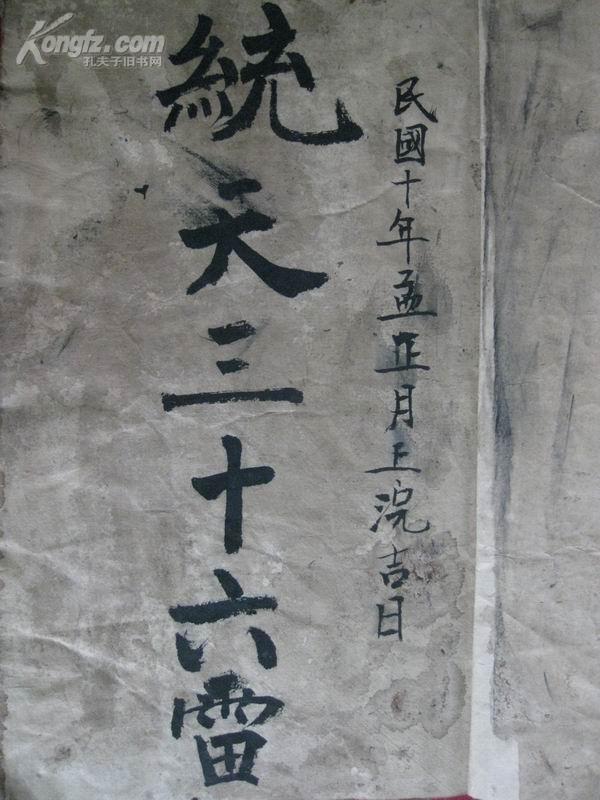 Kongfz.com
孔夫子旧书网
民國十年孟正月上浣吉日
統天三十六雷